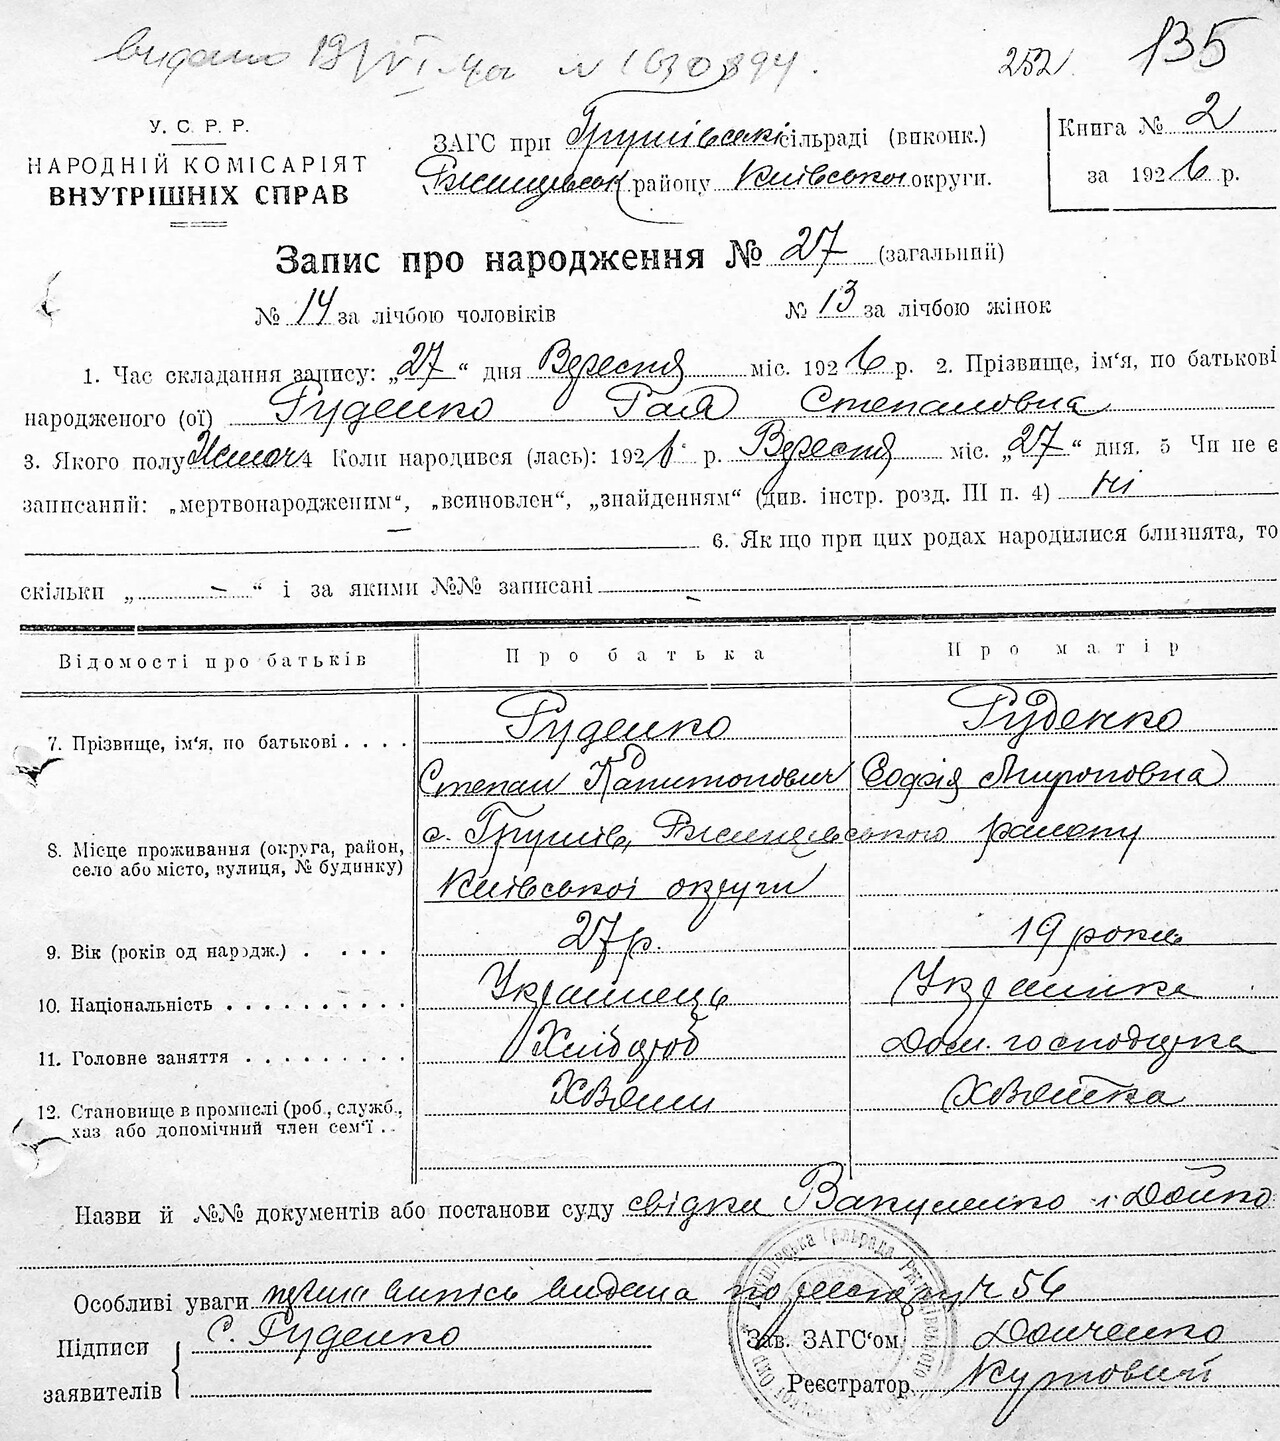 видано 19/VI-40 N 1030894. 252. 135
У. С. Р. Р.
НАРОДНІЙ КОМІСАРІЯТ
ВНУТРІШНІХ СПРАВ
ЗАГС при Грушівські сільраді (виконк.)
Ржищівськ району Київської округи.
Книга № 2
за 1926 р.
Запис про народження № 27 (загальний)
№ 14 за лічбою чоловіків № 13 за лічбою жінок
1. Час складання запису: „27“ дня Вересня міс. 1926 р. 2. Прізвище, ім‘я, по батькові
народженого (ої) Руденко Галя Степановна
3. Якого полу Жіноч 4 Коли народився (лась): 1926 р. Вересня міс. „27“ дня. 5 Чи не є
записаний: „мертвонародженим“, „всиновлен“, „знайденням“ (див. інстр. розд. III п. 4) ні
— 6. Якщо при цих родах народилися близнята, то
скільки „ – “ і за якими №№ записані –
Відомості про батьків Про батька Про матір
7. Прізвище, ім‘я, по батькові . . . . Руденко Руденко
Степан Капитонович Софія Мироновна
8. Місце проживання (округа, район,
село або місто, вулиця, № будинку)
с. Грушів, Ржищівського району
Київської округи
9. Вік (років од народж.) . . . . 27 р. 19 років
10. Національність . . . . . . . . . . Українець Українка
11. Головне заняття . . . . . . . . . Хлібороб Дом. господарка
12. Становище в промислі (роб., служб.,
хаз або допомічний член сем‘ї . .
Хозяїн Хозяйка
Назви й №№ документів або постанови суду свідки Вакуленко і Дойко
Особливі уваги перша випись видана по реєстру Ч 56
Підписи
заявителів
С. Руденко
Зав. ЗАГС‘ом Донченко
Реєстратор Кутовий